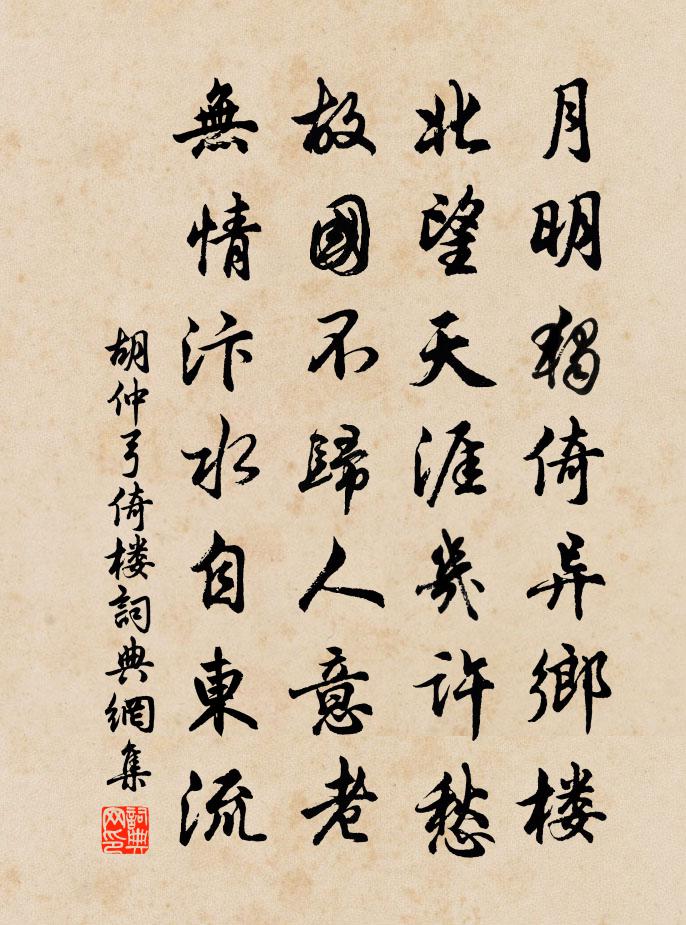 月明独倚异鄉楼
北望天涯幾許愁
故國不歸人意老
無情汴水自東流
胡仲弓倚楼詞典網集
詞典网印